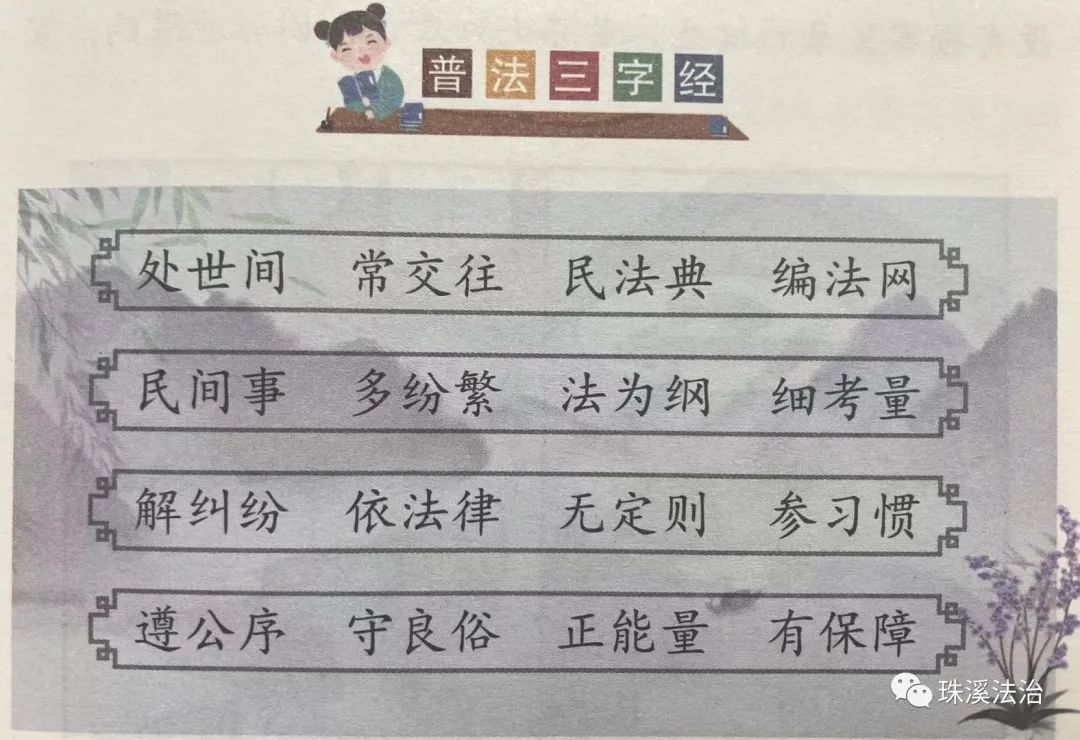 普法三字经
处世间 常交往 民法典 编法网
民间事 多纷繁 法为纲 细考量
解纠纷 依法律 无定则 参习惯
遵公序 守良俗 正能量 有保障
珠溪法治